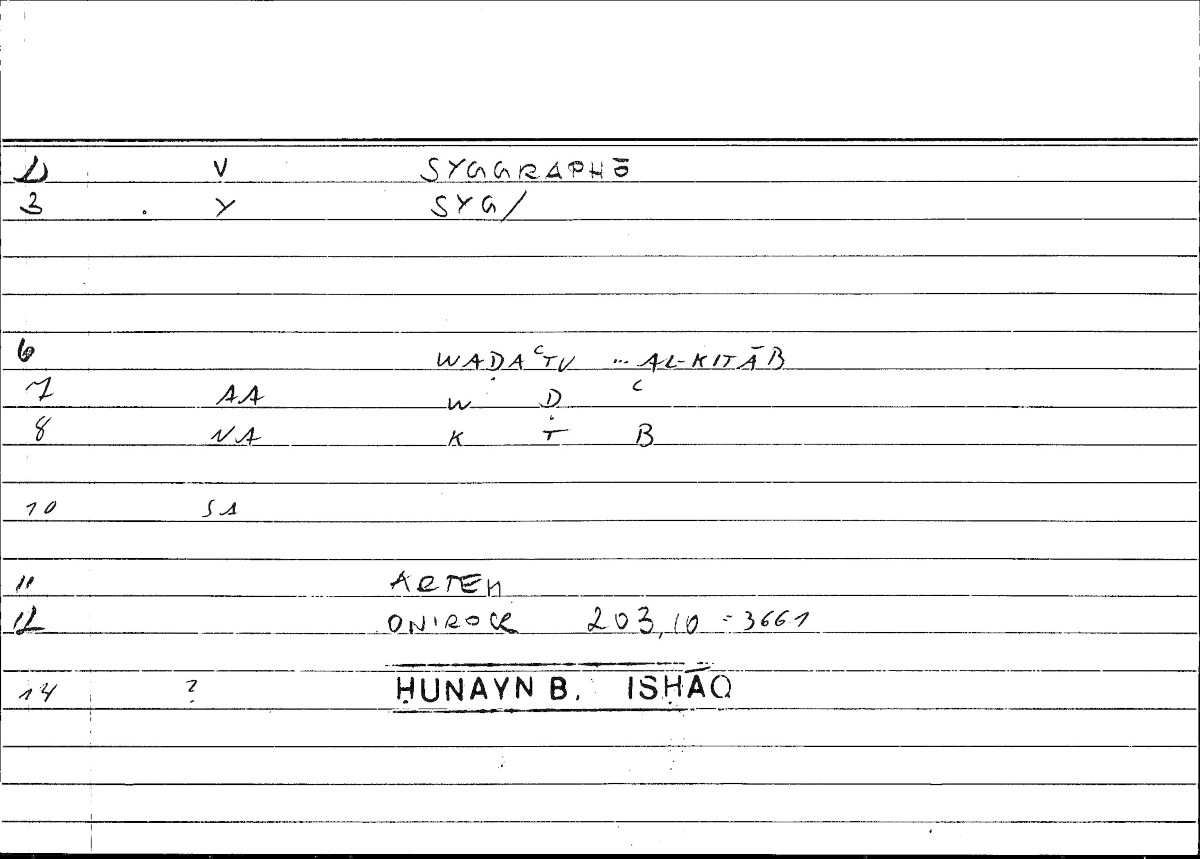 1 V SYGGRAPHŌ
3 . Y SYG/
6 WAḌAʿTU ... AL-KITĀB
7 AA W Ḍ ʿ
8 NA K T B
10 SA
11 ARTEM
12 ONIROCR 203,10 = 3661
14 ? ḤUNAYN B. ISḤĀQ